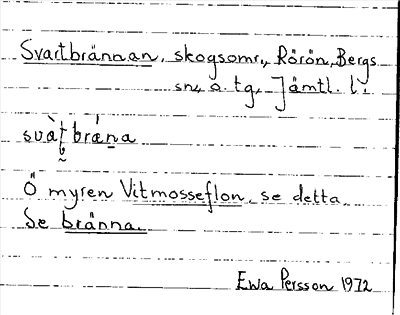 Svartbrännan, skogsomr., Rörön, Bergs
sn, o. tg, Jämtl. l.
svàt̰ brǽna
Ö myren Vitmosseflon, se detta.
Se bränna.
Ewa Persson 1972